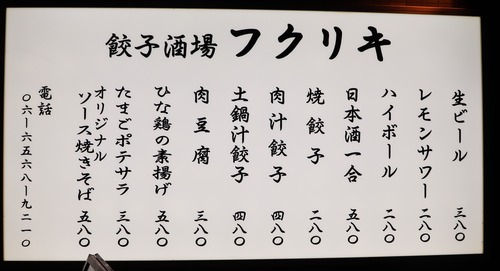 餃子酒場 フクリキ
生ビール 三八〇
レモンサワー 二八〇
ハイボール 二八〇
日本酒一合 五八〇
焼餃子 二八〇
肉汁餃子 四八〇
土鍋汁餃子 四八〇
肉豆腐 三八〇
ひな鶏の素揚げ 五八〇
たまごポテサラ 三八〇
オリジナル
ソース焼きそば 五八〇
電話
〇六ー六五六八ー九二一〇